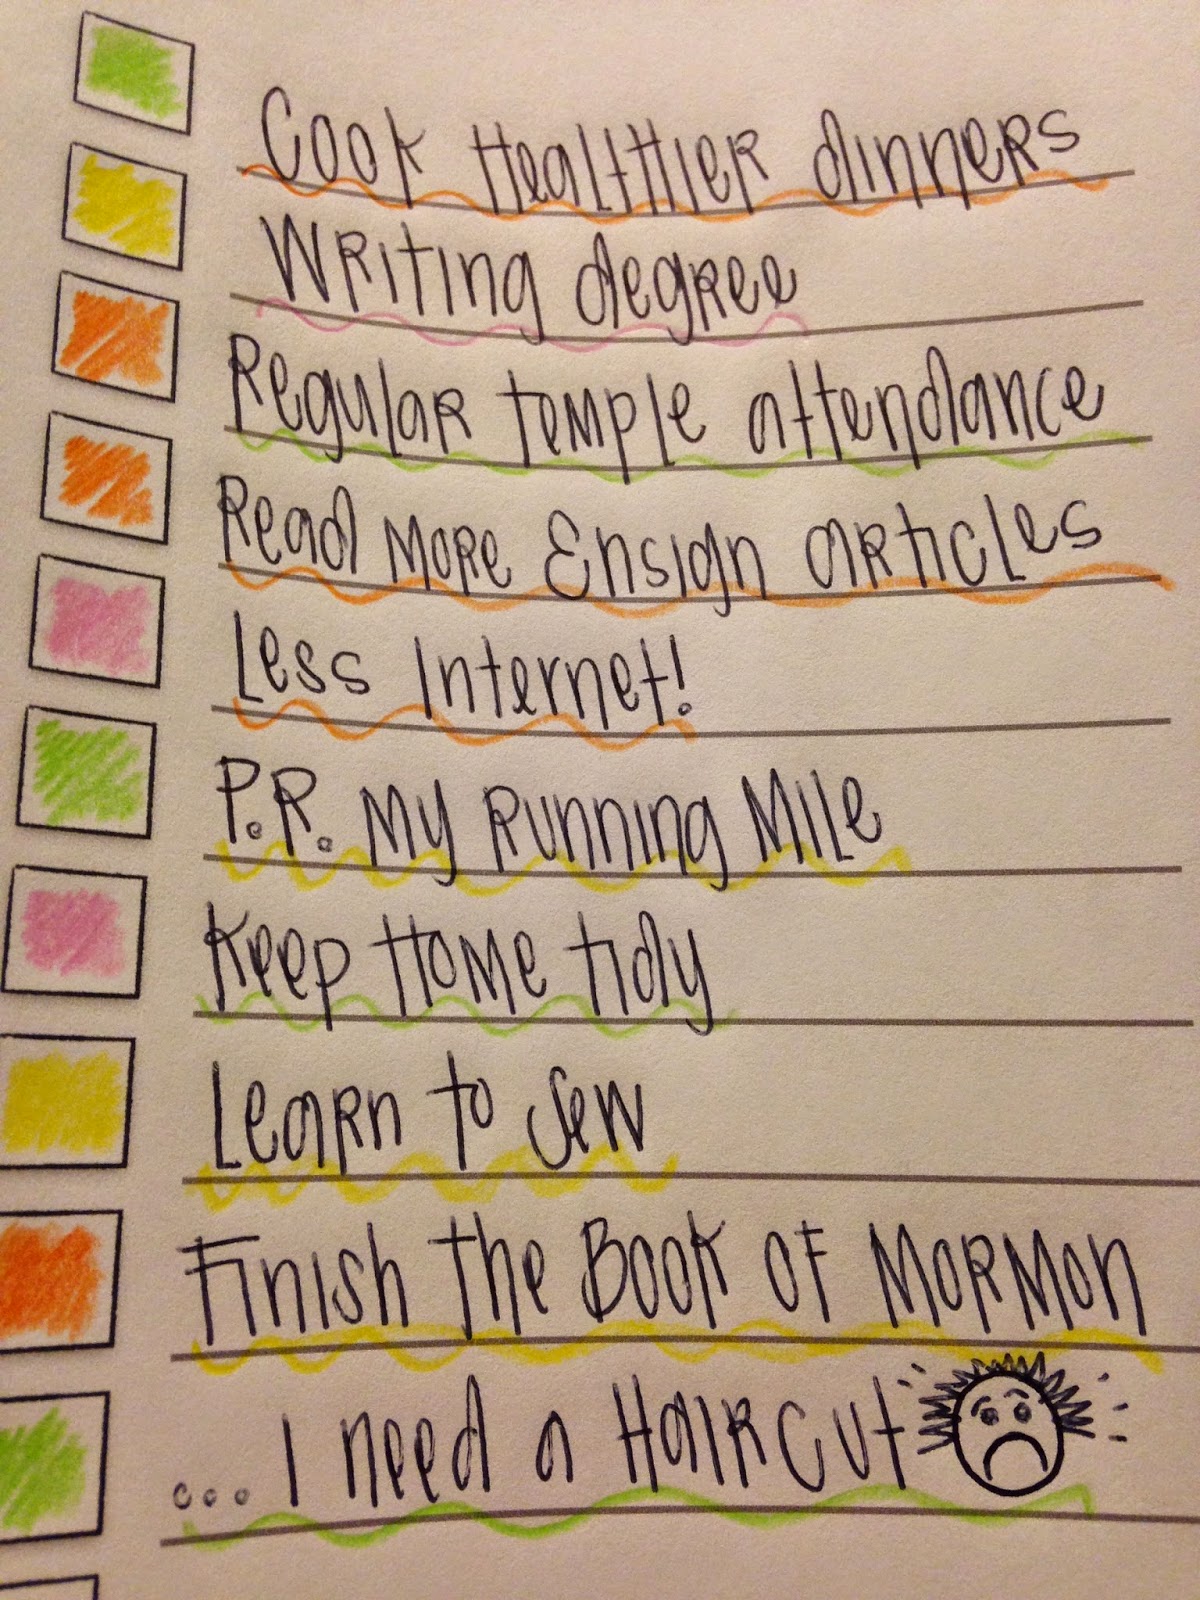 Cook Healthier dinners
Writing degree
Regular temple attendance
Read More Ensign articles
Less Internet!
P.R. My Running Mile
Keep Home tidy
Learn to Sew
Finish the Book of Mormon
...I need a Haircut